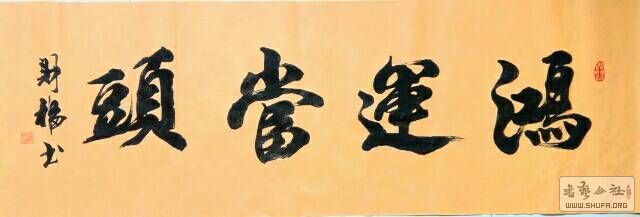 鴻運當頭
财福书
书艺公社
WWW.SHUFA.ORG